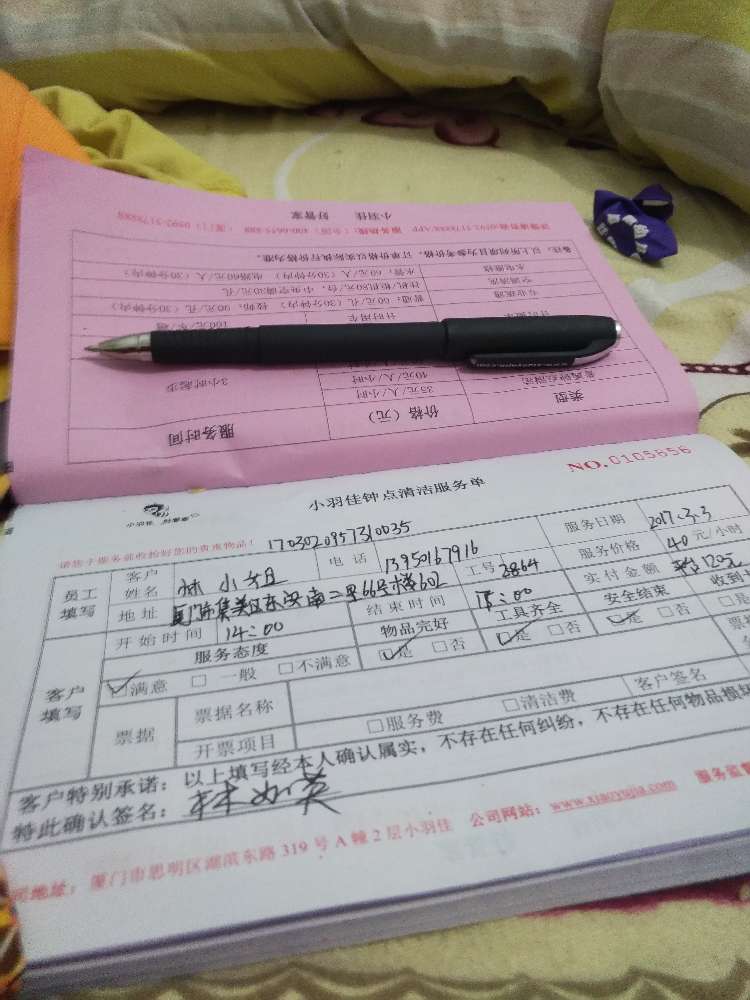 小羽佳 好管家
详情请咨询:0592-5178888/APP 服务热线:(全国)400-0655-888 (厦门)0592-5178888
备注:以上所列项目为参考价格,订单价格以实际执行价格为准。
水电维修 水管:60元/人(30分钟内) 电路60元/人(30分钟内)
空调清洗
专业疏通 普通:60元/孔(30分钟内)
计时用车
35元/人/小时
40元/人/小时
3小时起步
类型 价格(元) 服务时间
小羽佳钟点清洁服务单
NO.0105656
小羽佳 好管家
请您于服务前收拾好您的贵重物品!
1703020957310035
服务日期 2017.3.3
员工填写 客户姓名 林小姐 电话 13950167916 工号 2864 服务价格 40元/小时
地址 厦门市集美区东安南二里66号楼602 实付金额 平台120元
开始时间 14:00 结束时间
服务态度 物品完好 工具齐全 安全结束 收到
客户填写 ☑满意 □一般 □不满意 ☑是 □否 ☑是 □否 ☑是 □否
票据 票据名称
开票项目 □服务费 □清洁费 客户签名
客户特别承诺:以上填写经本人确认属实,不存在任何纠纷,不存在任何物品损坏
特此确认签名:林如英
司地址:厦门市思明区湖滨东路319号A幢2层小羽佳 公司网站:www.xiaoyujia.com 服务监督